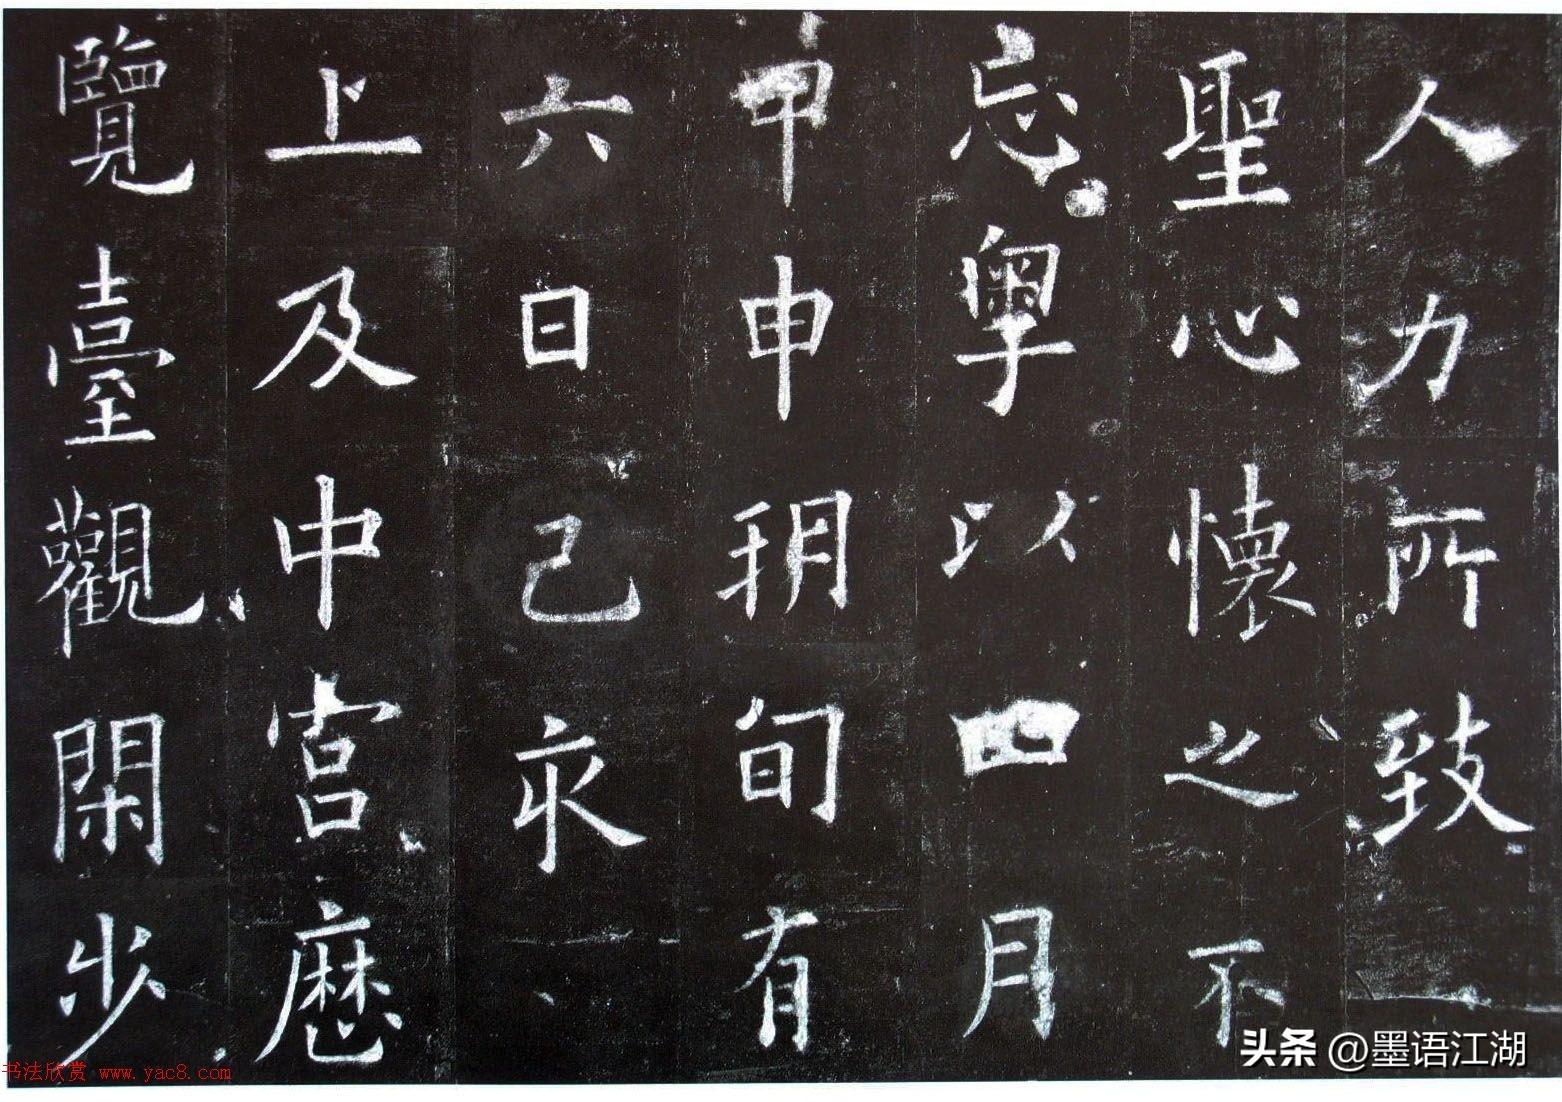 人力所致
聖心懷之不
忘粵以四月
甲申朔旬有
六日己亥
上及中宮歷
覽臺觀閑步
头条 @墨语江湖
书法欣赏 www.yac8.com